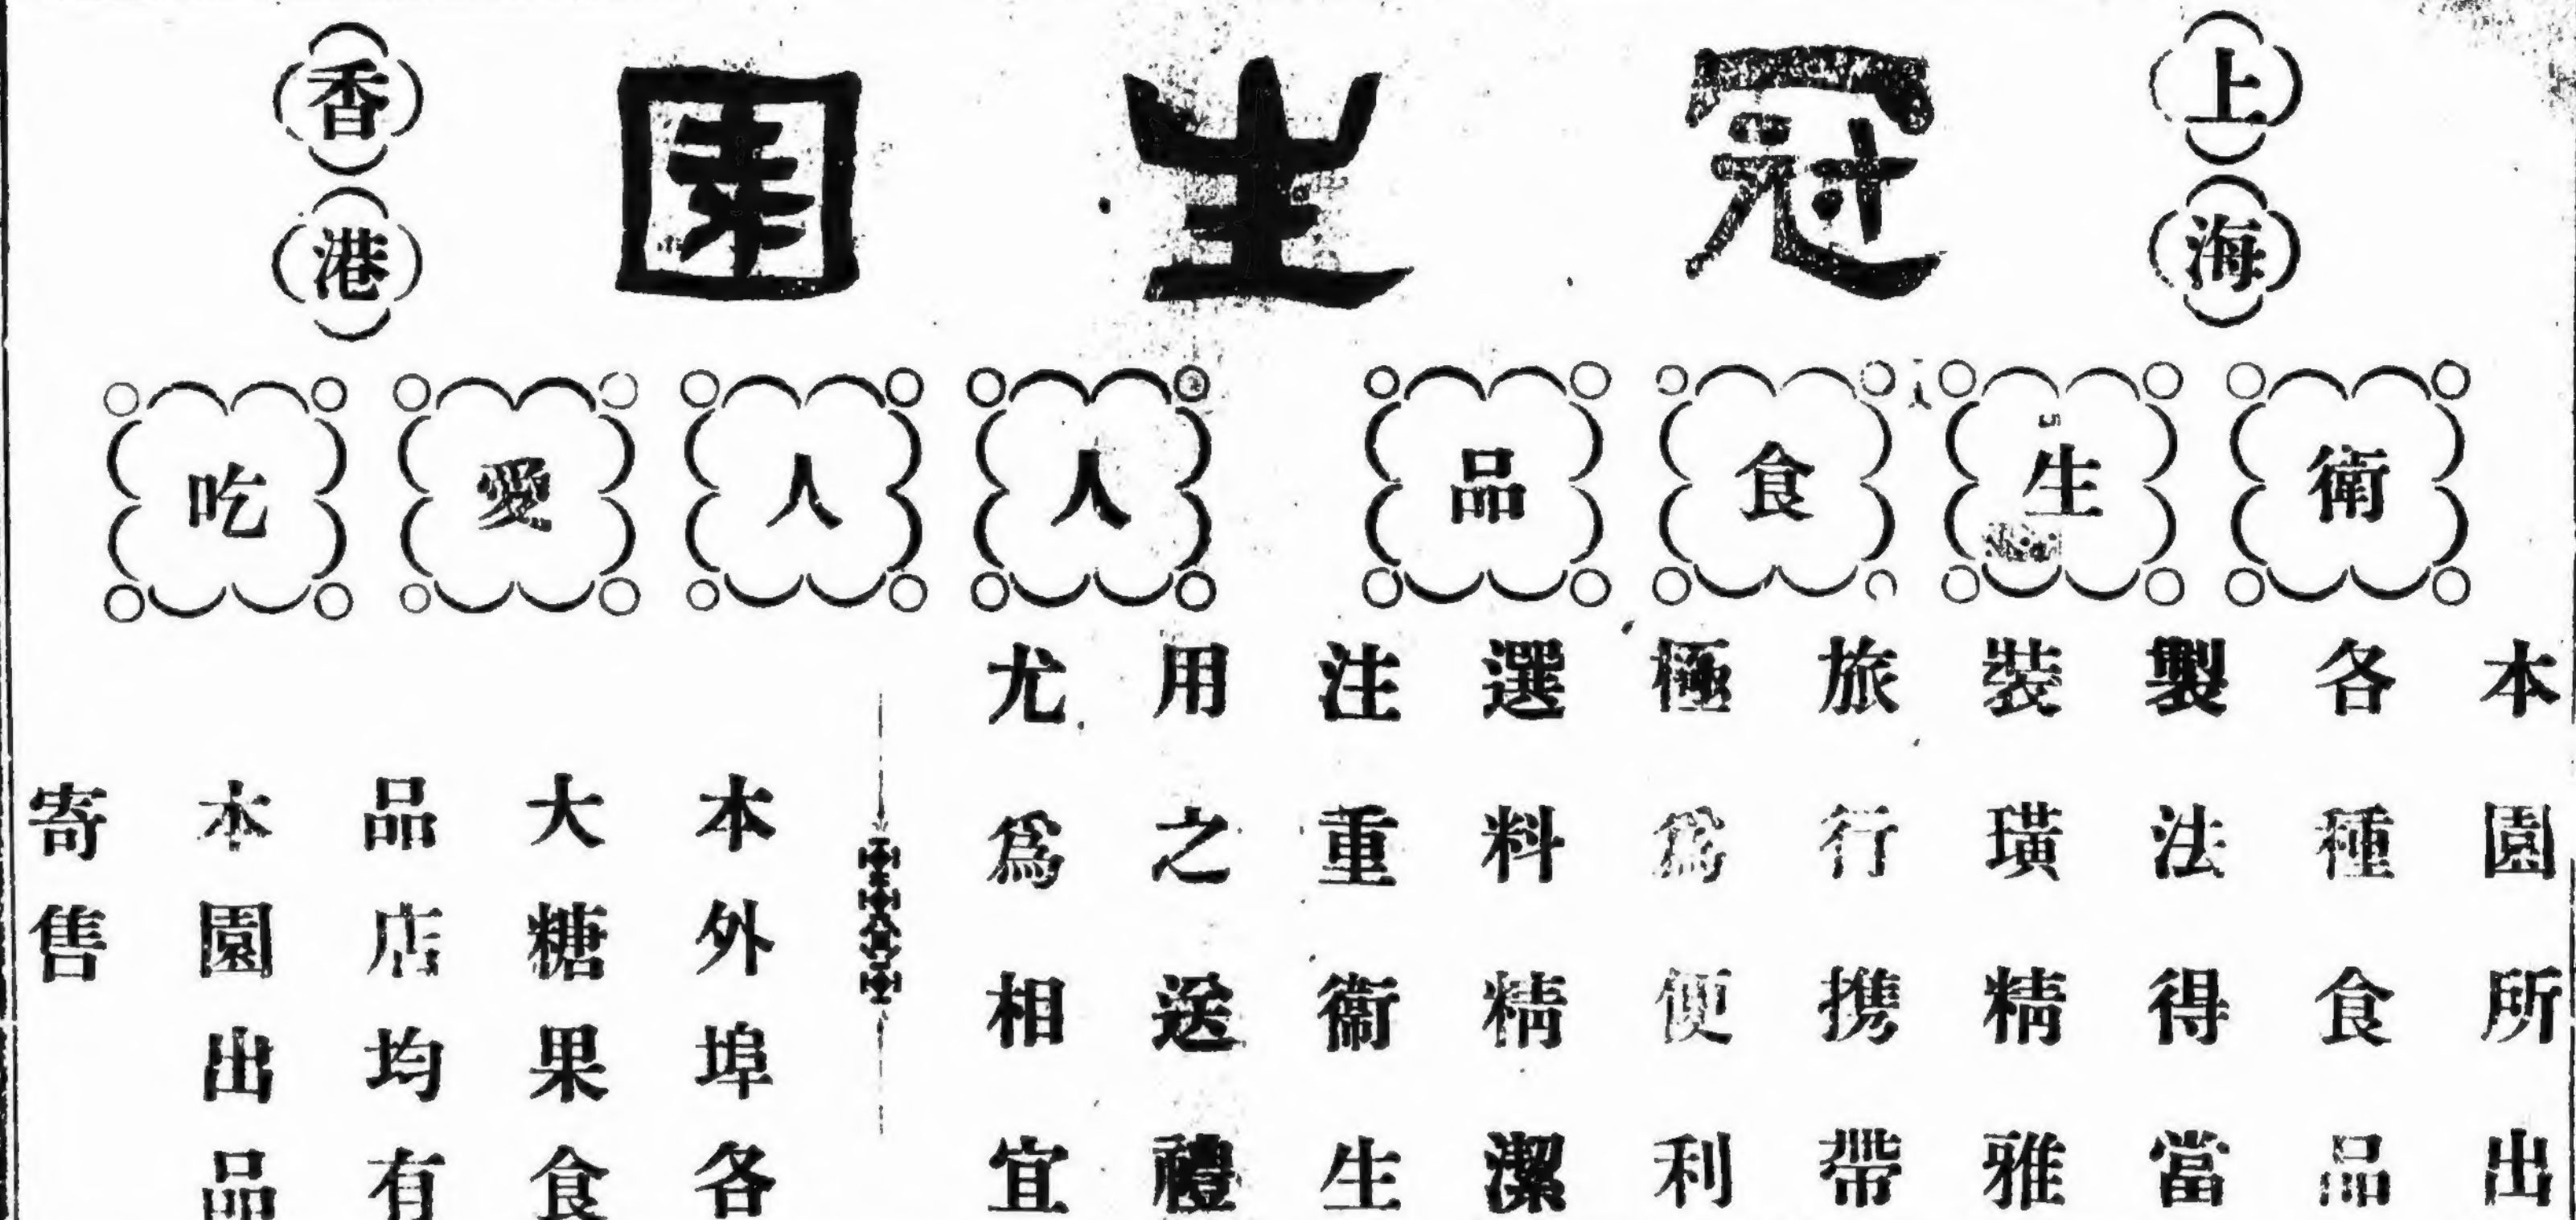 上海
冠生園
香港
衛生食品
人人愛吃
本園所出
各種食品
製法得當
裝璜精雅
旅行携帶
極爲便利
選料精潔
注重衞生
用之送禮
尤爲相宜
本外埠各
大糖果食
品店均有
本園出品
寄售